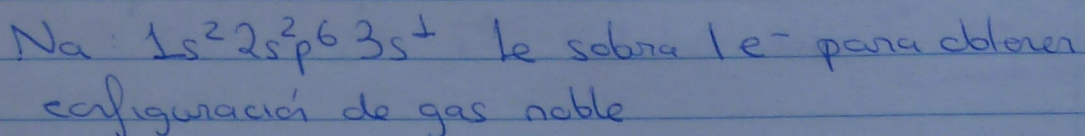 Na: 1s² 2s²p⁶ 3s¹ le sobra 1e⁻ para obtener
configuración de gas noble